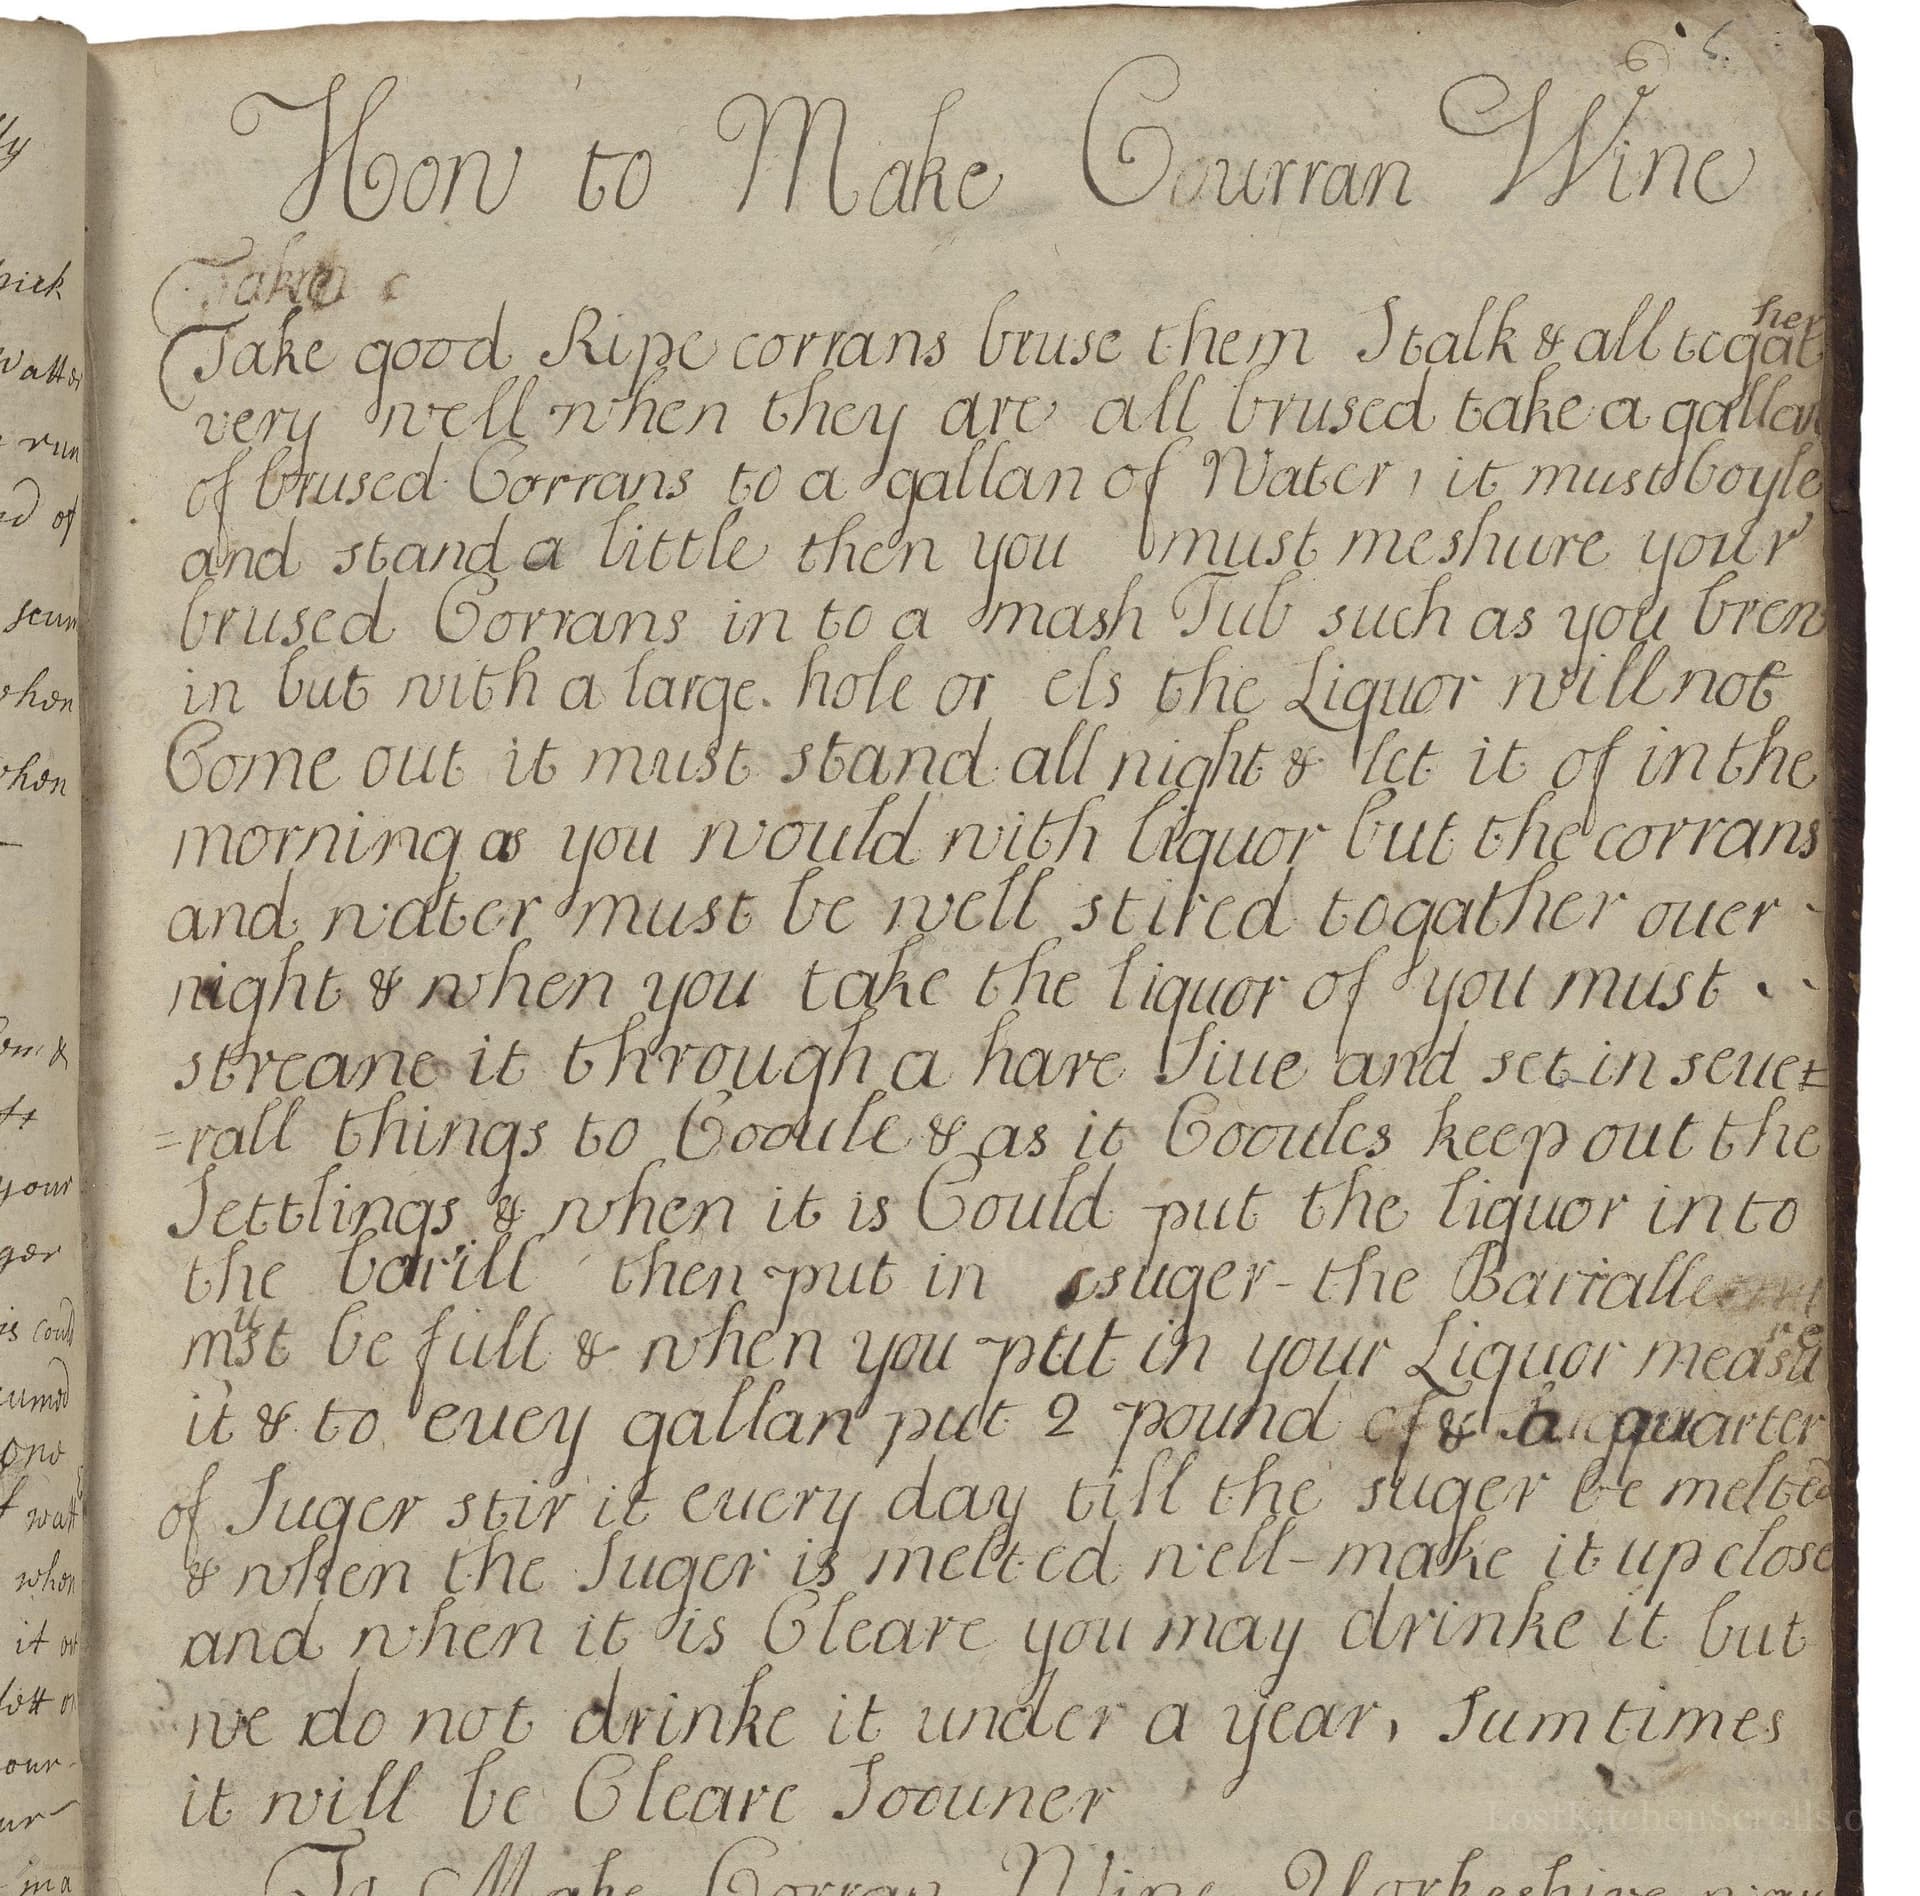 6
How to Make Courran Wine
Take
Take good Ripe corrans bruse them Stalk & all togather
very well when they are all brused take a gallan
of brused Corrans to a gallan of Water, it must boyle
and stand a little then you must meshure your
brused Corrans in to a mash Tub such as you brew
in but with a large. hole or els the Liquor will not
Come out it must stand all night & let it of in the
morning as you would with liquor but the corrans
and water must be well stired togather ouer -
night & when you take the liquor of you must
streane it through a hare Siue and set in seue=
=rall things to Cooule & as it Cooules keep out the
Settlings & when it is Could put the liquor into
the barill then put in suger - the Barralle
must be full & when you put in your Liquor measure
it & to euey gallan put 2 pound & a quarter
of Suger stir it euery day till the suger be melted
& when the Suger is melted well - make it up close
and when it is Cleare you may drinke it but
we do not drinke it under a year, Sumtimes
it will be Cleare Soouner
To Make Corran Wine Yorkeshire way
LostKitchenScrolls.o
ly
run
of
scum
when
when
&
your
ger
is could
one
when
it
our
in a